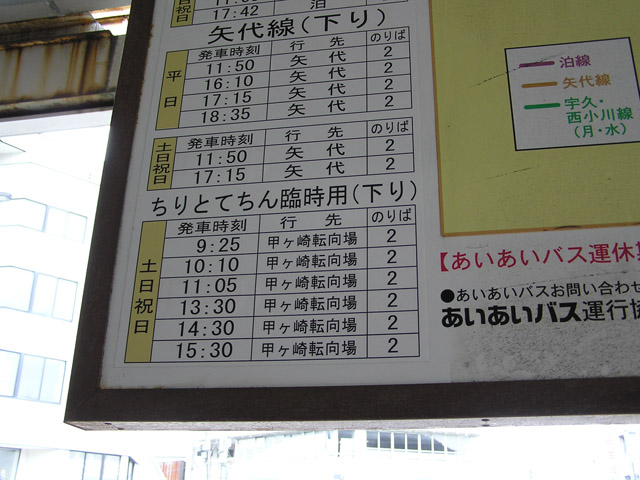 17:42 泊
矢代線(下り)
発車時刻 行先 のりば
平日
11:50 矢代 2
16:10 矢代 2
17:15 矢代 2
18:35 矢代 2
発車時刻 行先 のりば
土日祝日
11:50 矢代 2
17:15 矢代 2
ちりとてちん臨時用(下り)
発車時刻 行先 のりば
土日祝日
9:25 甲ヶ崎転向場 2
10:10 甲ヶ崎転向場 2
11:05 甲ヶ崎転向場 2
13:30 甲ヶ崎転向場 2
14:30 甲ヶ崎転向場 2
15:30 甲ヶ崎転向場 2
泊線
矢代線
宇久・
西小川線
(月・水)
【あいあいバス運休
●あいあいバスお問い合わせ
あいあいバス運行協